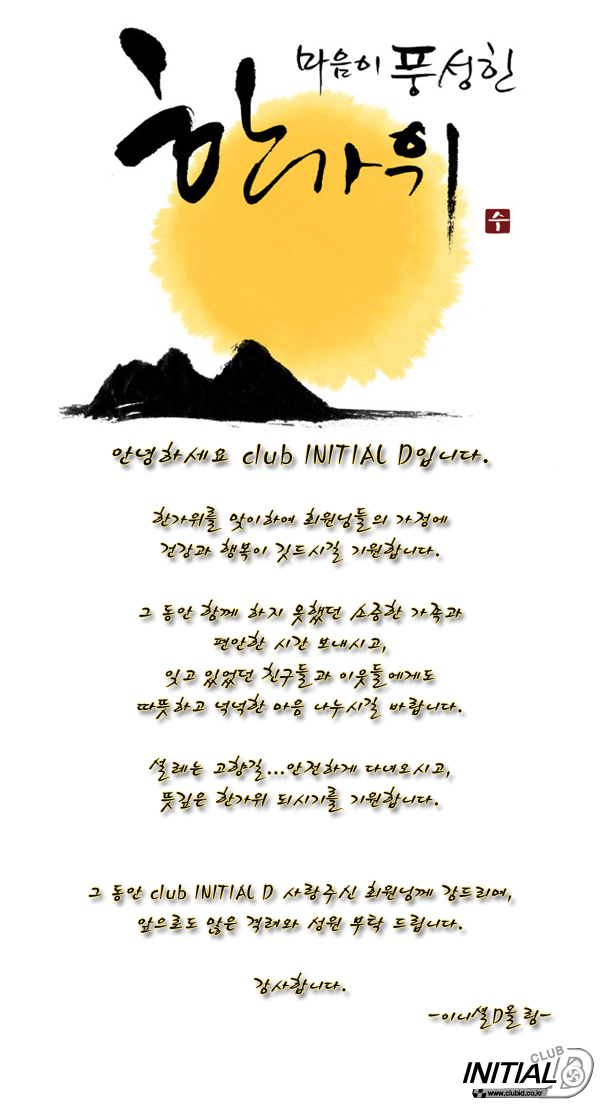 마음이 풍성한
한가위
수
안녕하세요 club INITIAL D입니다.
한가위를 맞이하여 회원님들의 가정에
건강과 행복이 깃드시길 기원합니다.
그 동안 함께 하지 못했던 소중한 가족과
편안한 시간 보내시고,
잊고 있었던 친구들과 이웃들에게도
따뜻하고 넉넉한 마음 나누시길 바랍니다.
설레는 고향길...안전하게 다녀오시고,
뜻깊은 한가위 되시기를 기원합니다.
그 동안 club INITIAL D 사랑주신 회원님께 감드리며,
앞으로도 많은 격려와 성원 부탁 드립니다.
감사합니다.
-이니셜D올림-
CLUB
INITIAL D
www.clubid.co.kr